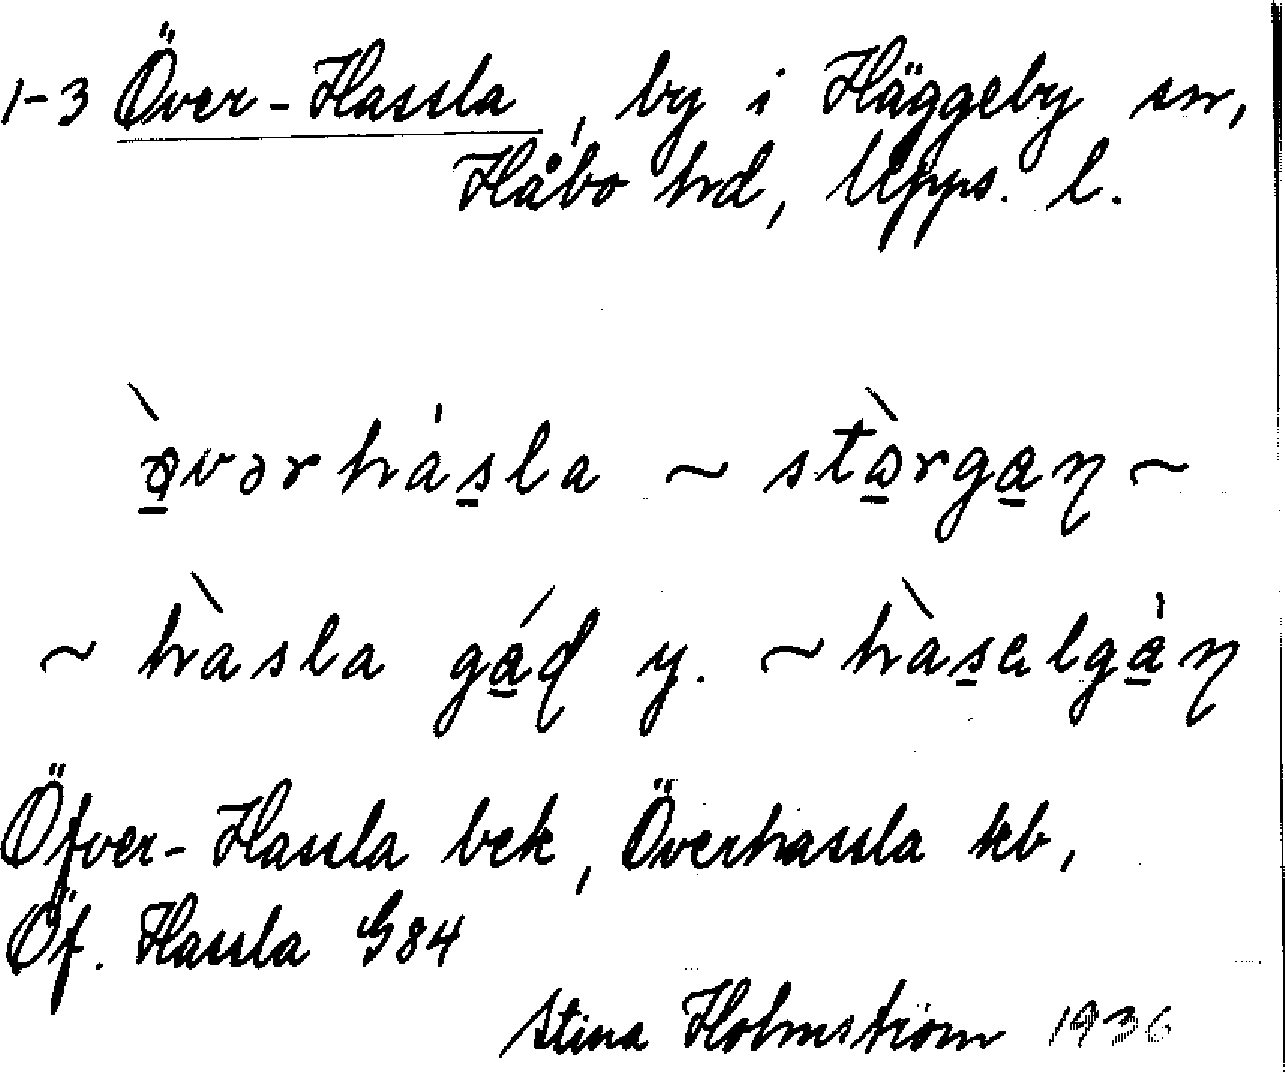 1-3 Över-Hassla, by i Häggeby sn,
Håbo hd, Upps. l.
ø̱̀vərhás̱la ~ stòrga̱ṇ ~
~ hàsla gá̱ḍ y. ~ hàs̱algá̱ṇ
Öfver-Hassla bek, Överhassla kb,
Öf. Hassla G84
Stina Holmström 1936